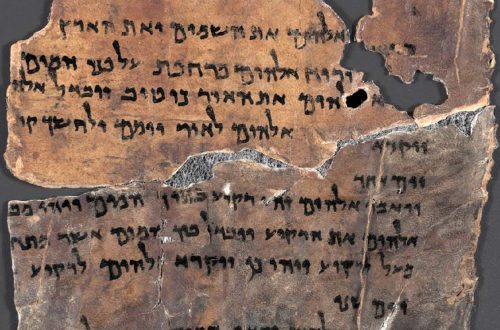 אלהים את השמים ואת הארץ
ורוח אלהים מרחפת על פני המים
להים את האור כי טוב ויבדל אלה
אלהים לאור יומם ולחשך קר
יום אחד
ויאמר אלהים יהי רקיע בתוך המים ויהי מב
אלהים את הרקיע ויבדל בין המים אשר מתח
מעל לרקיע ויהי כן ויקרא אלהים לרקיע
יום שני